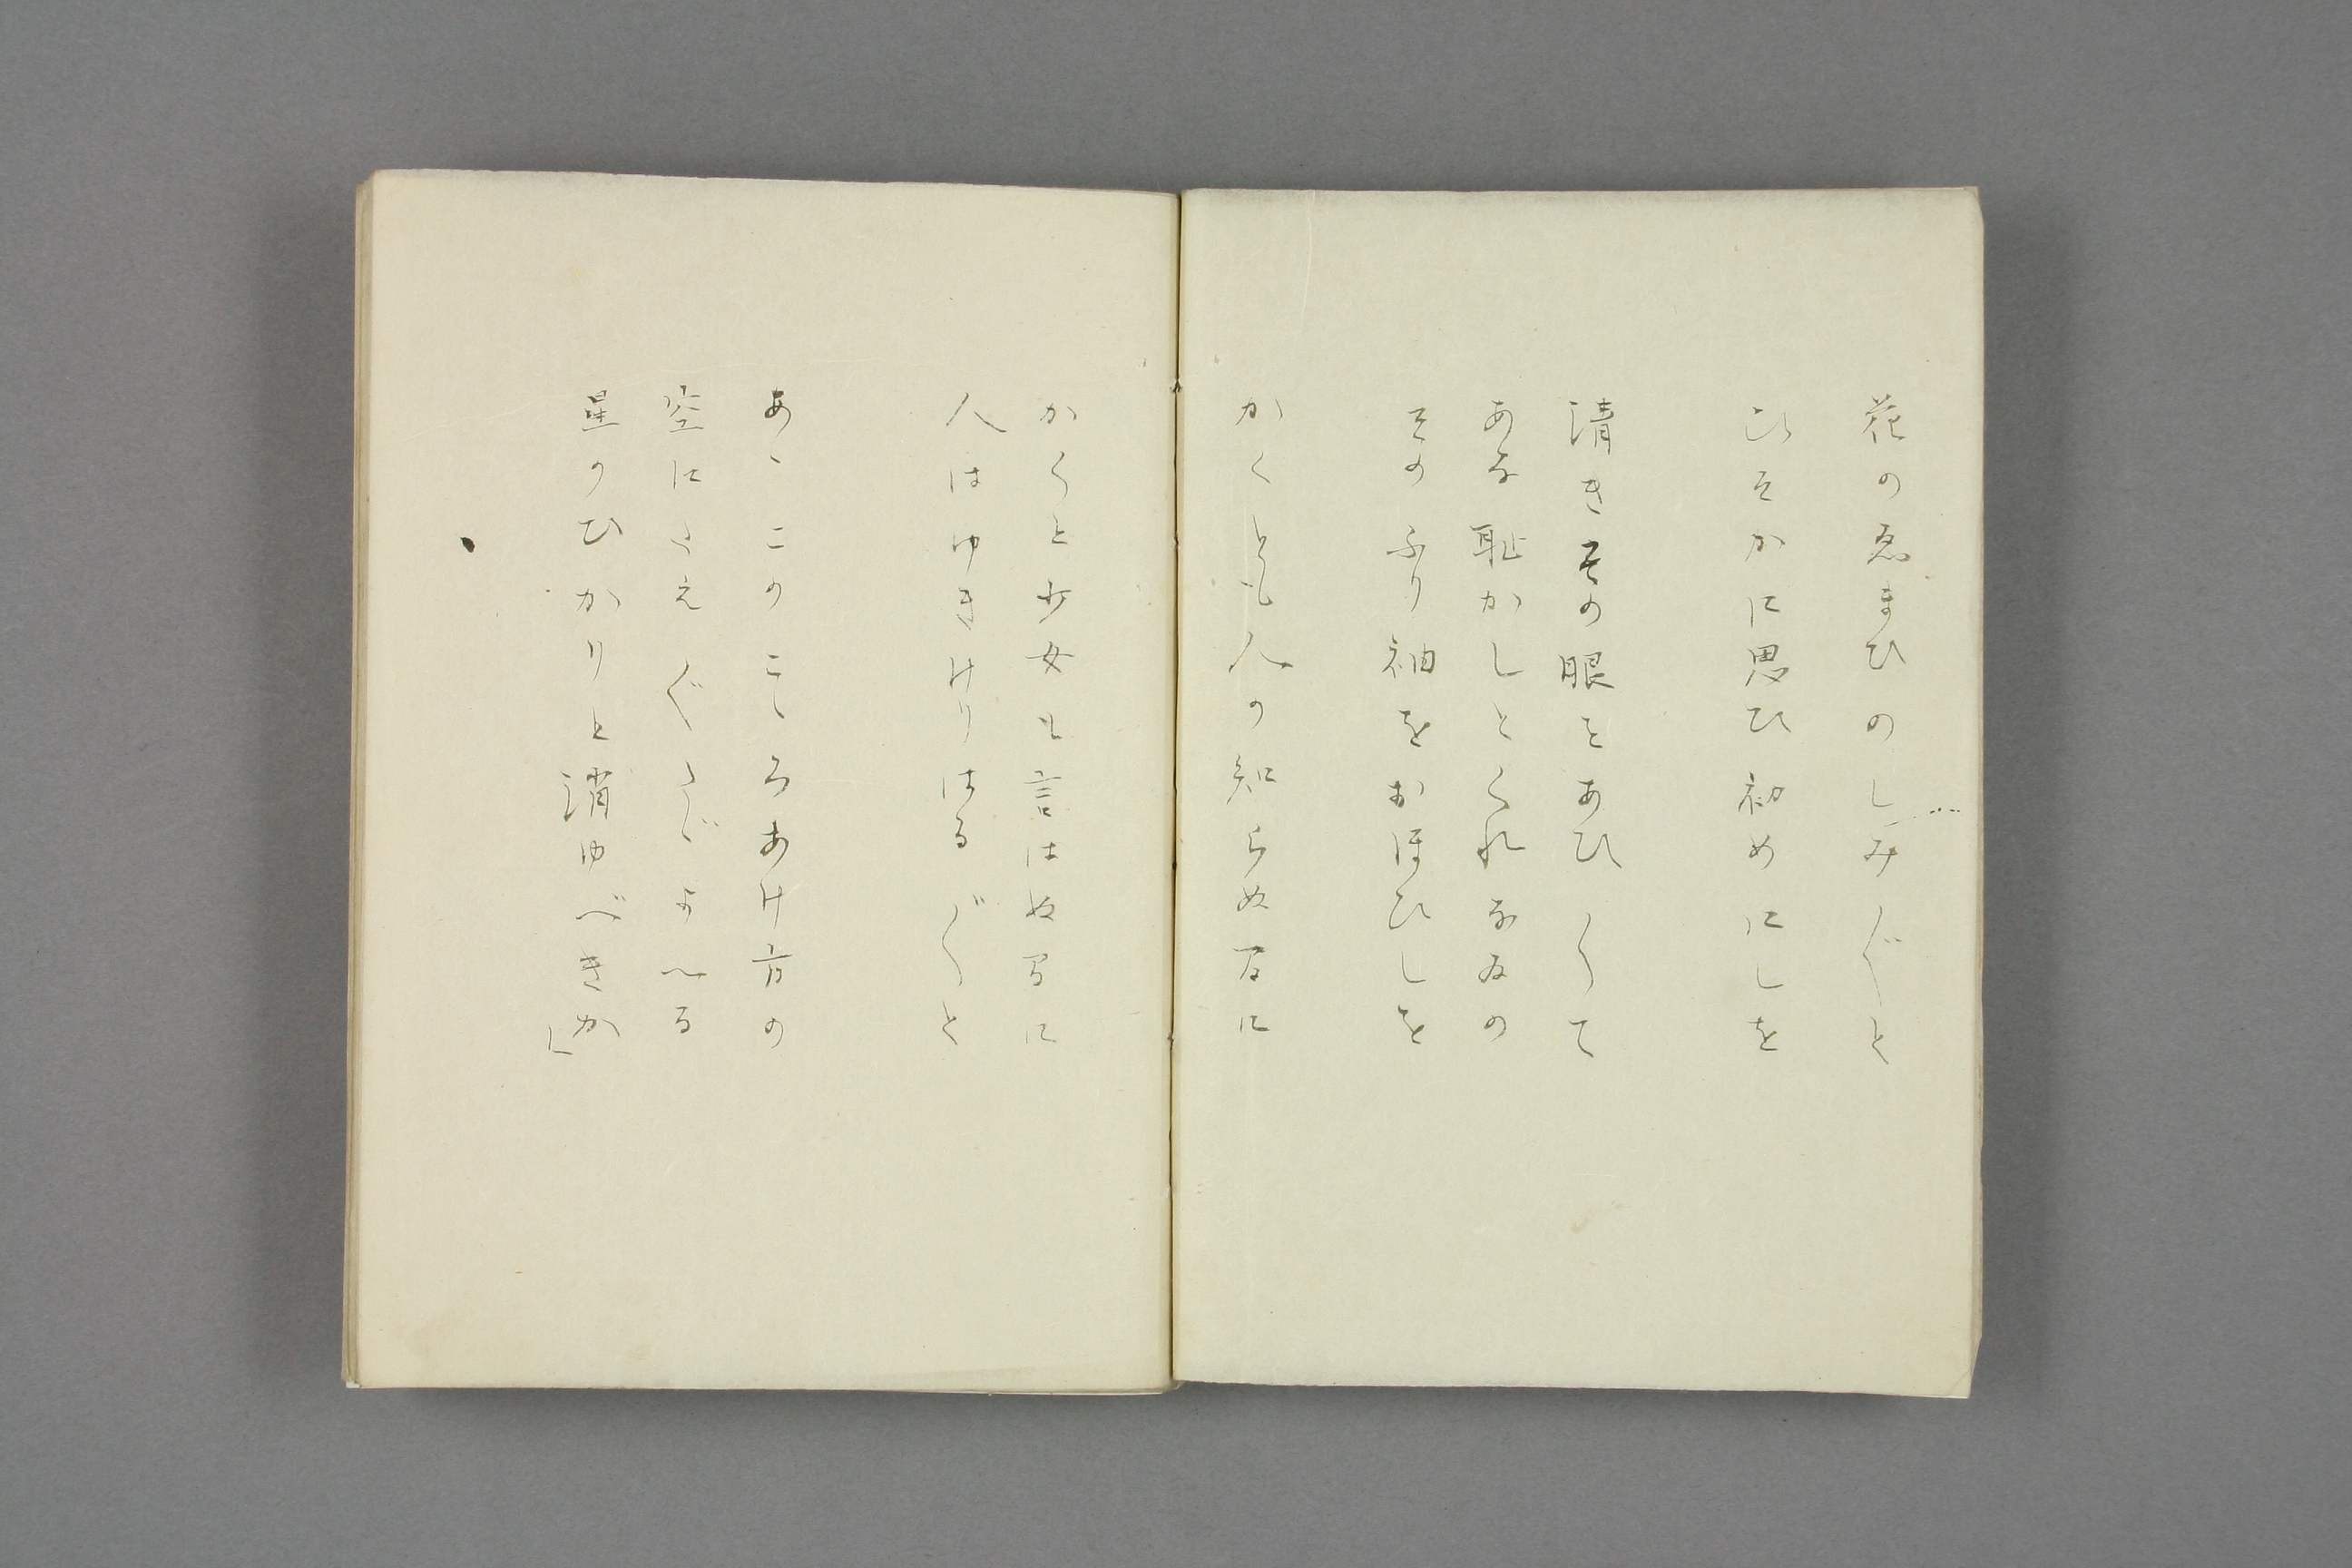 花のゑまひのしみ〴〵と
ひそかに思ひ初めにしを
清きその眼とあひ〳〵て
あな恥かしとくれなゐの
そのふり袖をおほひしを
かくとも人の知らぬ間に
かくと少女も言はぬ間に
人はゆきけりはる〴〵と
あゝこのこゝろあけ方の
空にたえ〴〵たゞよへる
星のひかりと消ゆべきか」